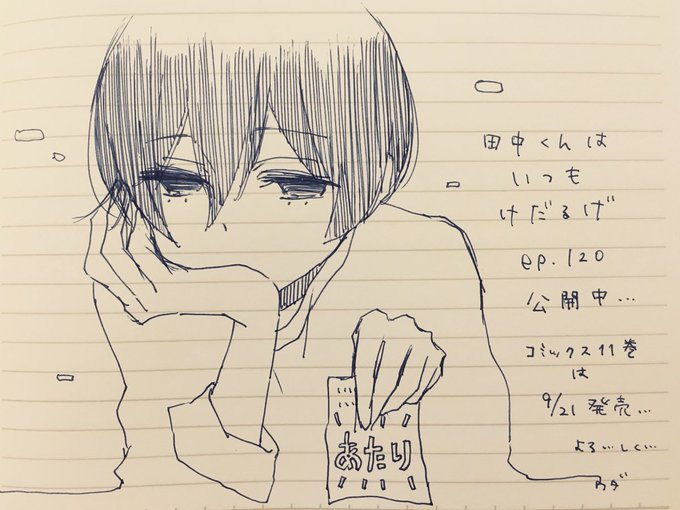 田中くんは
いつも
けだるげ
ep.120
公開中…
コミックス11巻
は
9/21発売…
よろ…しく…
ウダ
あたり